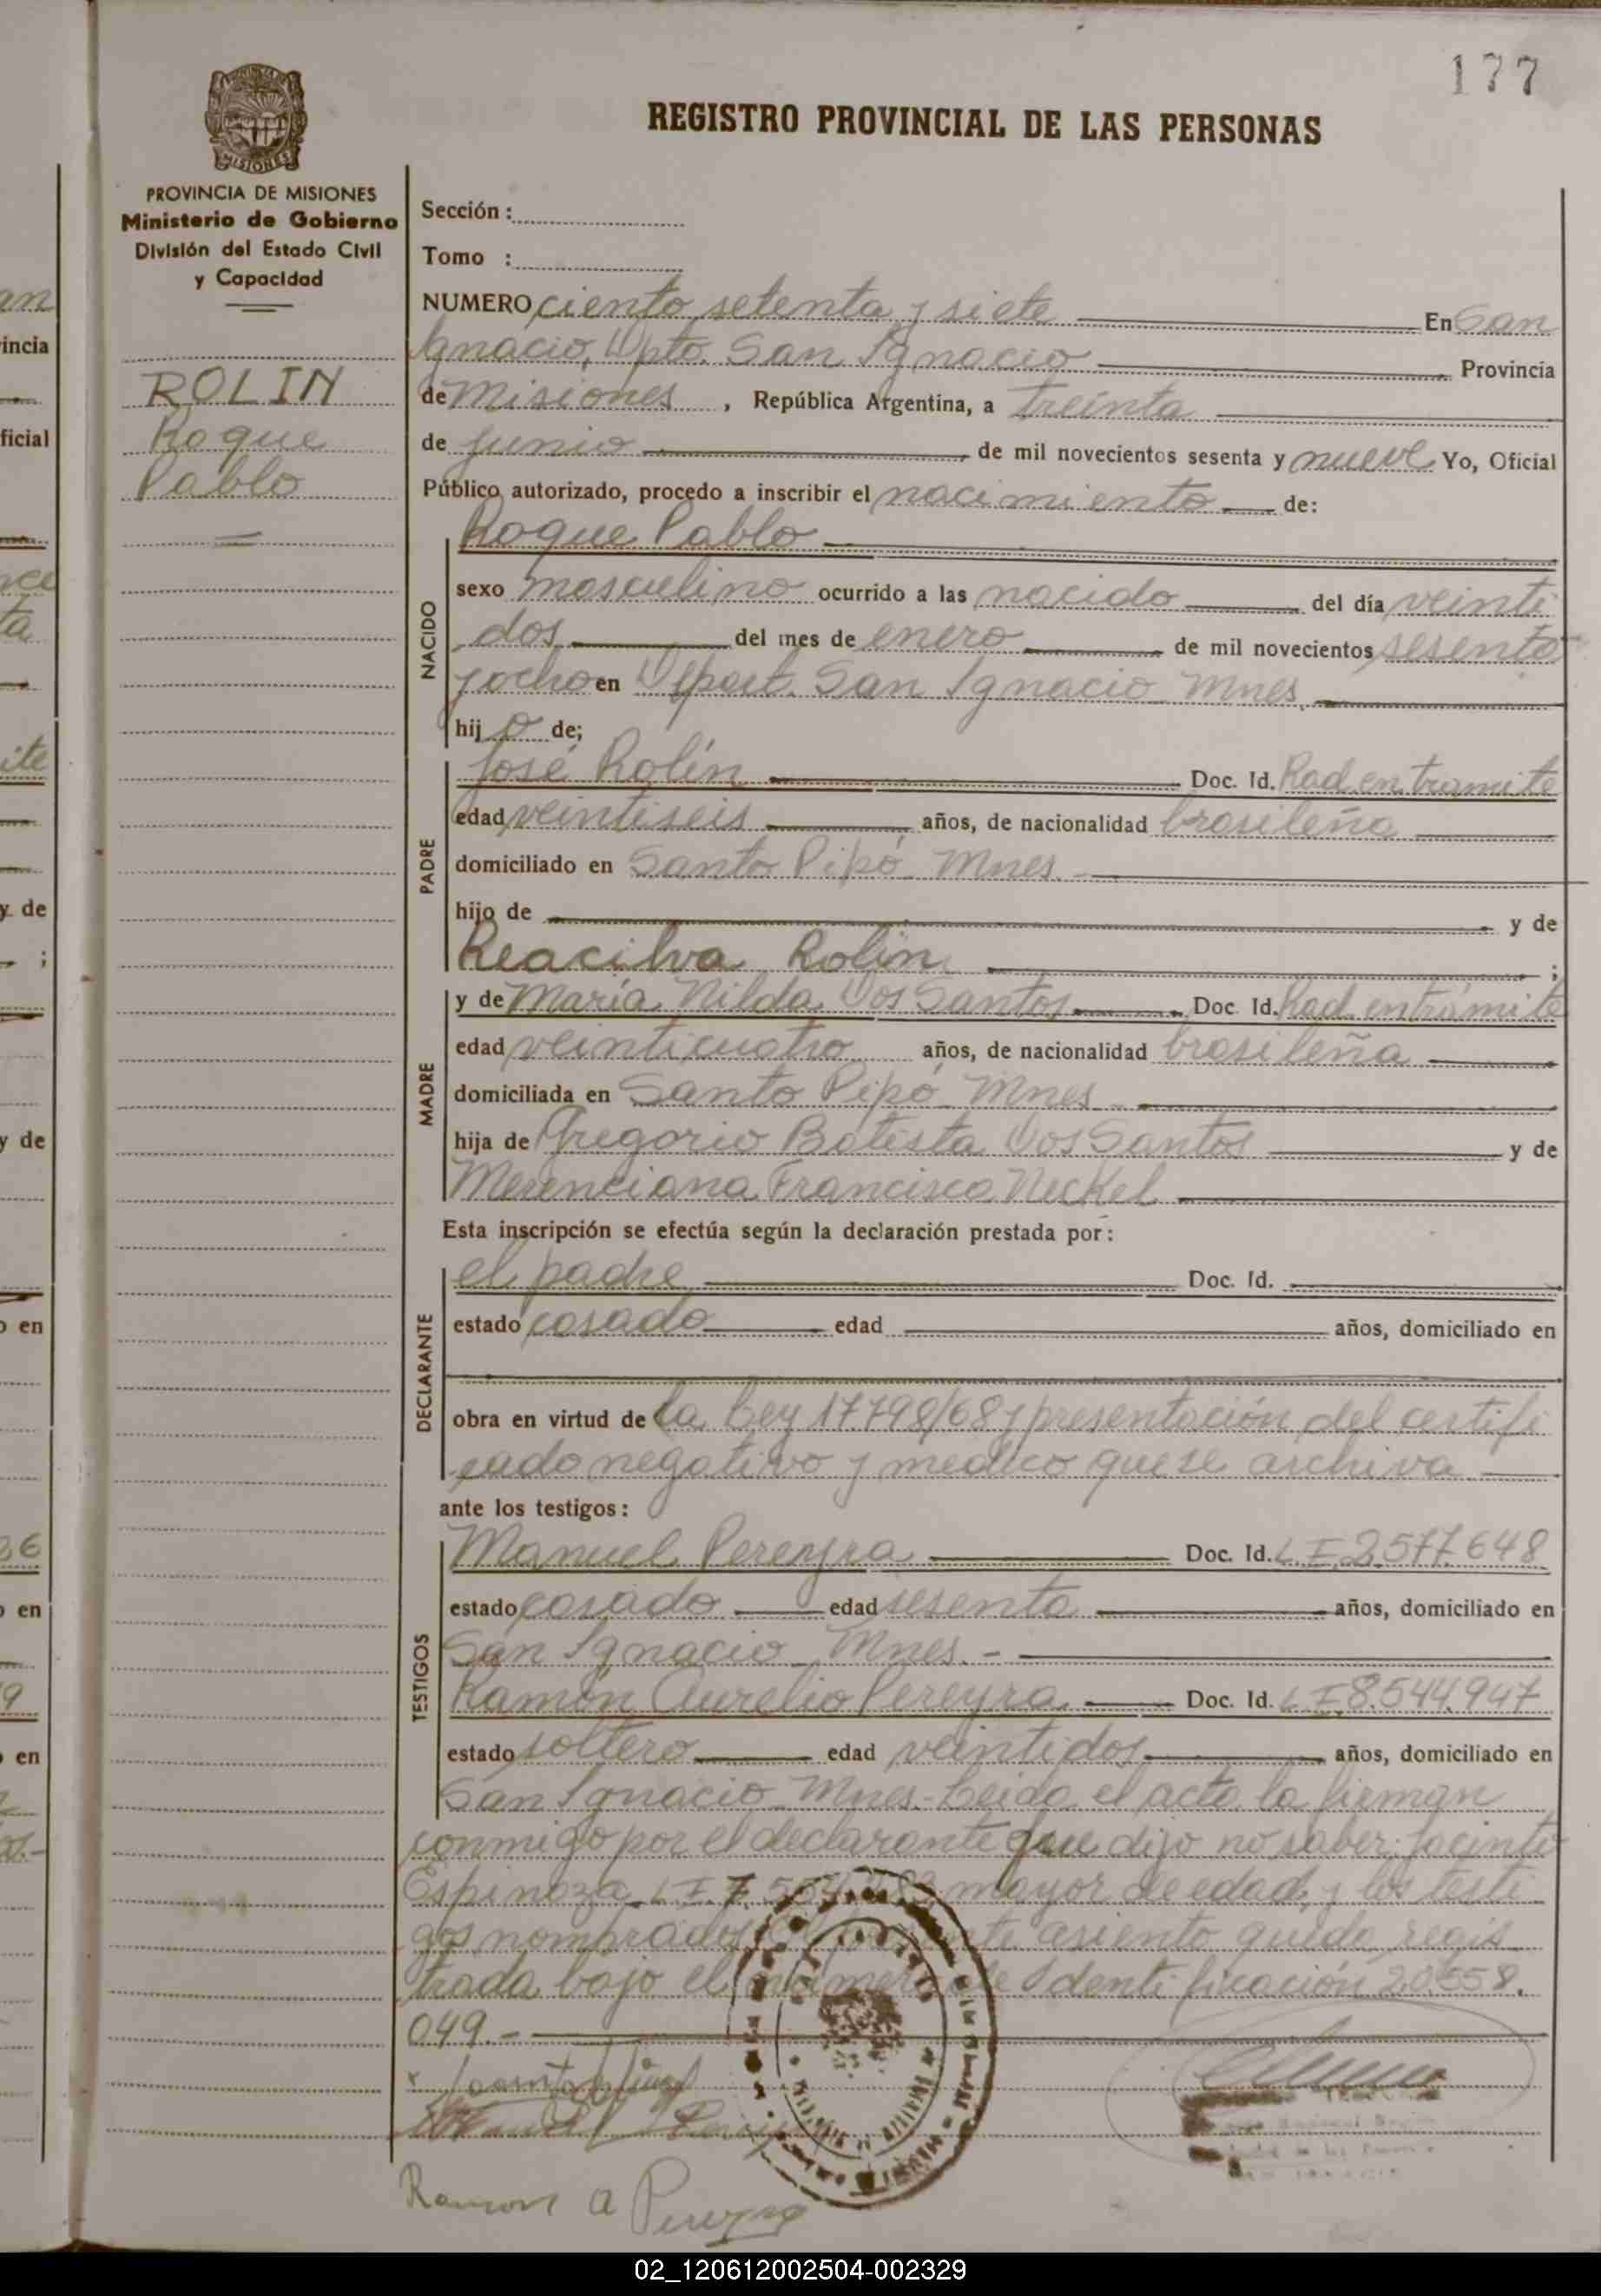 177
REGISTRO PROVINCIAL DE LAS PERSONAS
MISIONES
PROVINCIA DE MISIONES
Ministerio de Gobierno
División del Estado Civil
y Capacidad
ROLIN
Roque
Pablo
Sección :
Tomo :
NUMERO ciento setenta y siete En San
Ignacio, Dpto. San Ignacio Provincia
de Misiones, República Argentina, a treinta
de junio de mil novecientos sesenta y nueve Yo, Oficial
Público autorizado, procedo a inscribir el nacimiento de:
NACIDO
Roque Pablo
sexo masculino ocurrido a las nacido del día veinti
dos del mes de enero de mil novecientos sesenta
y ocho en Depart. San Ignacio Mnes.
hijo de;
PADRE
José Rolín Doc. Id. Rad. en tramite
edad veintiseis años, de nacionalidad brasileña
domiciliado en Santo Pipó Mnes.-
hijo de y de
Reacilva Rolin ;
MADRE
y de María Nilda Dos Santos Doc. Id. Rad. en trámite
edad veinticuatro años, de nacionalidad brasileña
domiciliada en Santo Pipó Mnes
hija de Gregorio Batista Dos Santos y de
Merenciana Francisco Neckel
Esta inscripción se efectúa según la declaración prestada por :
DECLARANTE
el padre Doc. Id.
estado casado edad años, domiciliado en
obra en virtud de la Ley 17.798/68 y presentación del certifi
cado negativo y medico que se archiva
ante los testigos :
TESTIGOS
Manuel Pereyra Doc. Id. L.E 2.577.648
estado casado edad sesenta años, domiciliado en
San Ignacio Mnes.-
Ramón Aurelio Pereyra Doc. Id. L E 8.544.947
estado soltero edad veintidos años, domiciliado en
San Ignacio Mnes.- Leida el acta la firman
conmigo por el declarante que dijo no saber: Jacinto
Espinoza L.E. 7. mayor de edad, y los testi
gos nombrados. El asiento queda regis
trada bajo el numero de Identificación 20.558.
049.-
Ramon A Pereyra
02_120612002504-002329